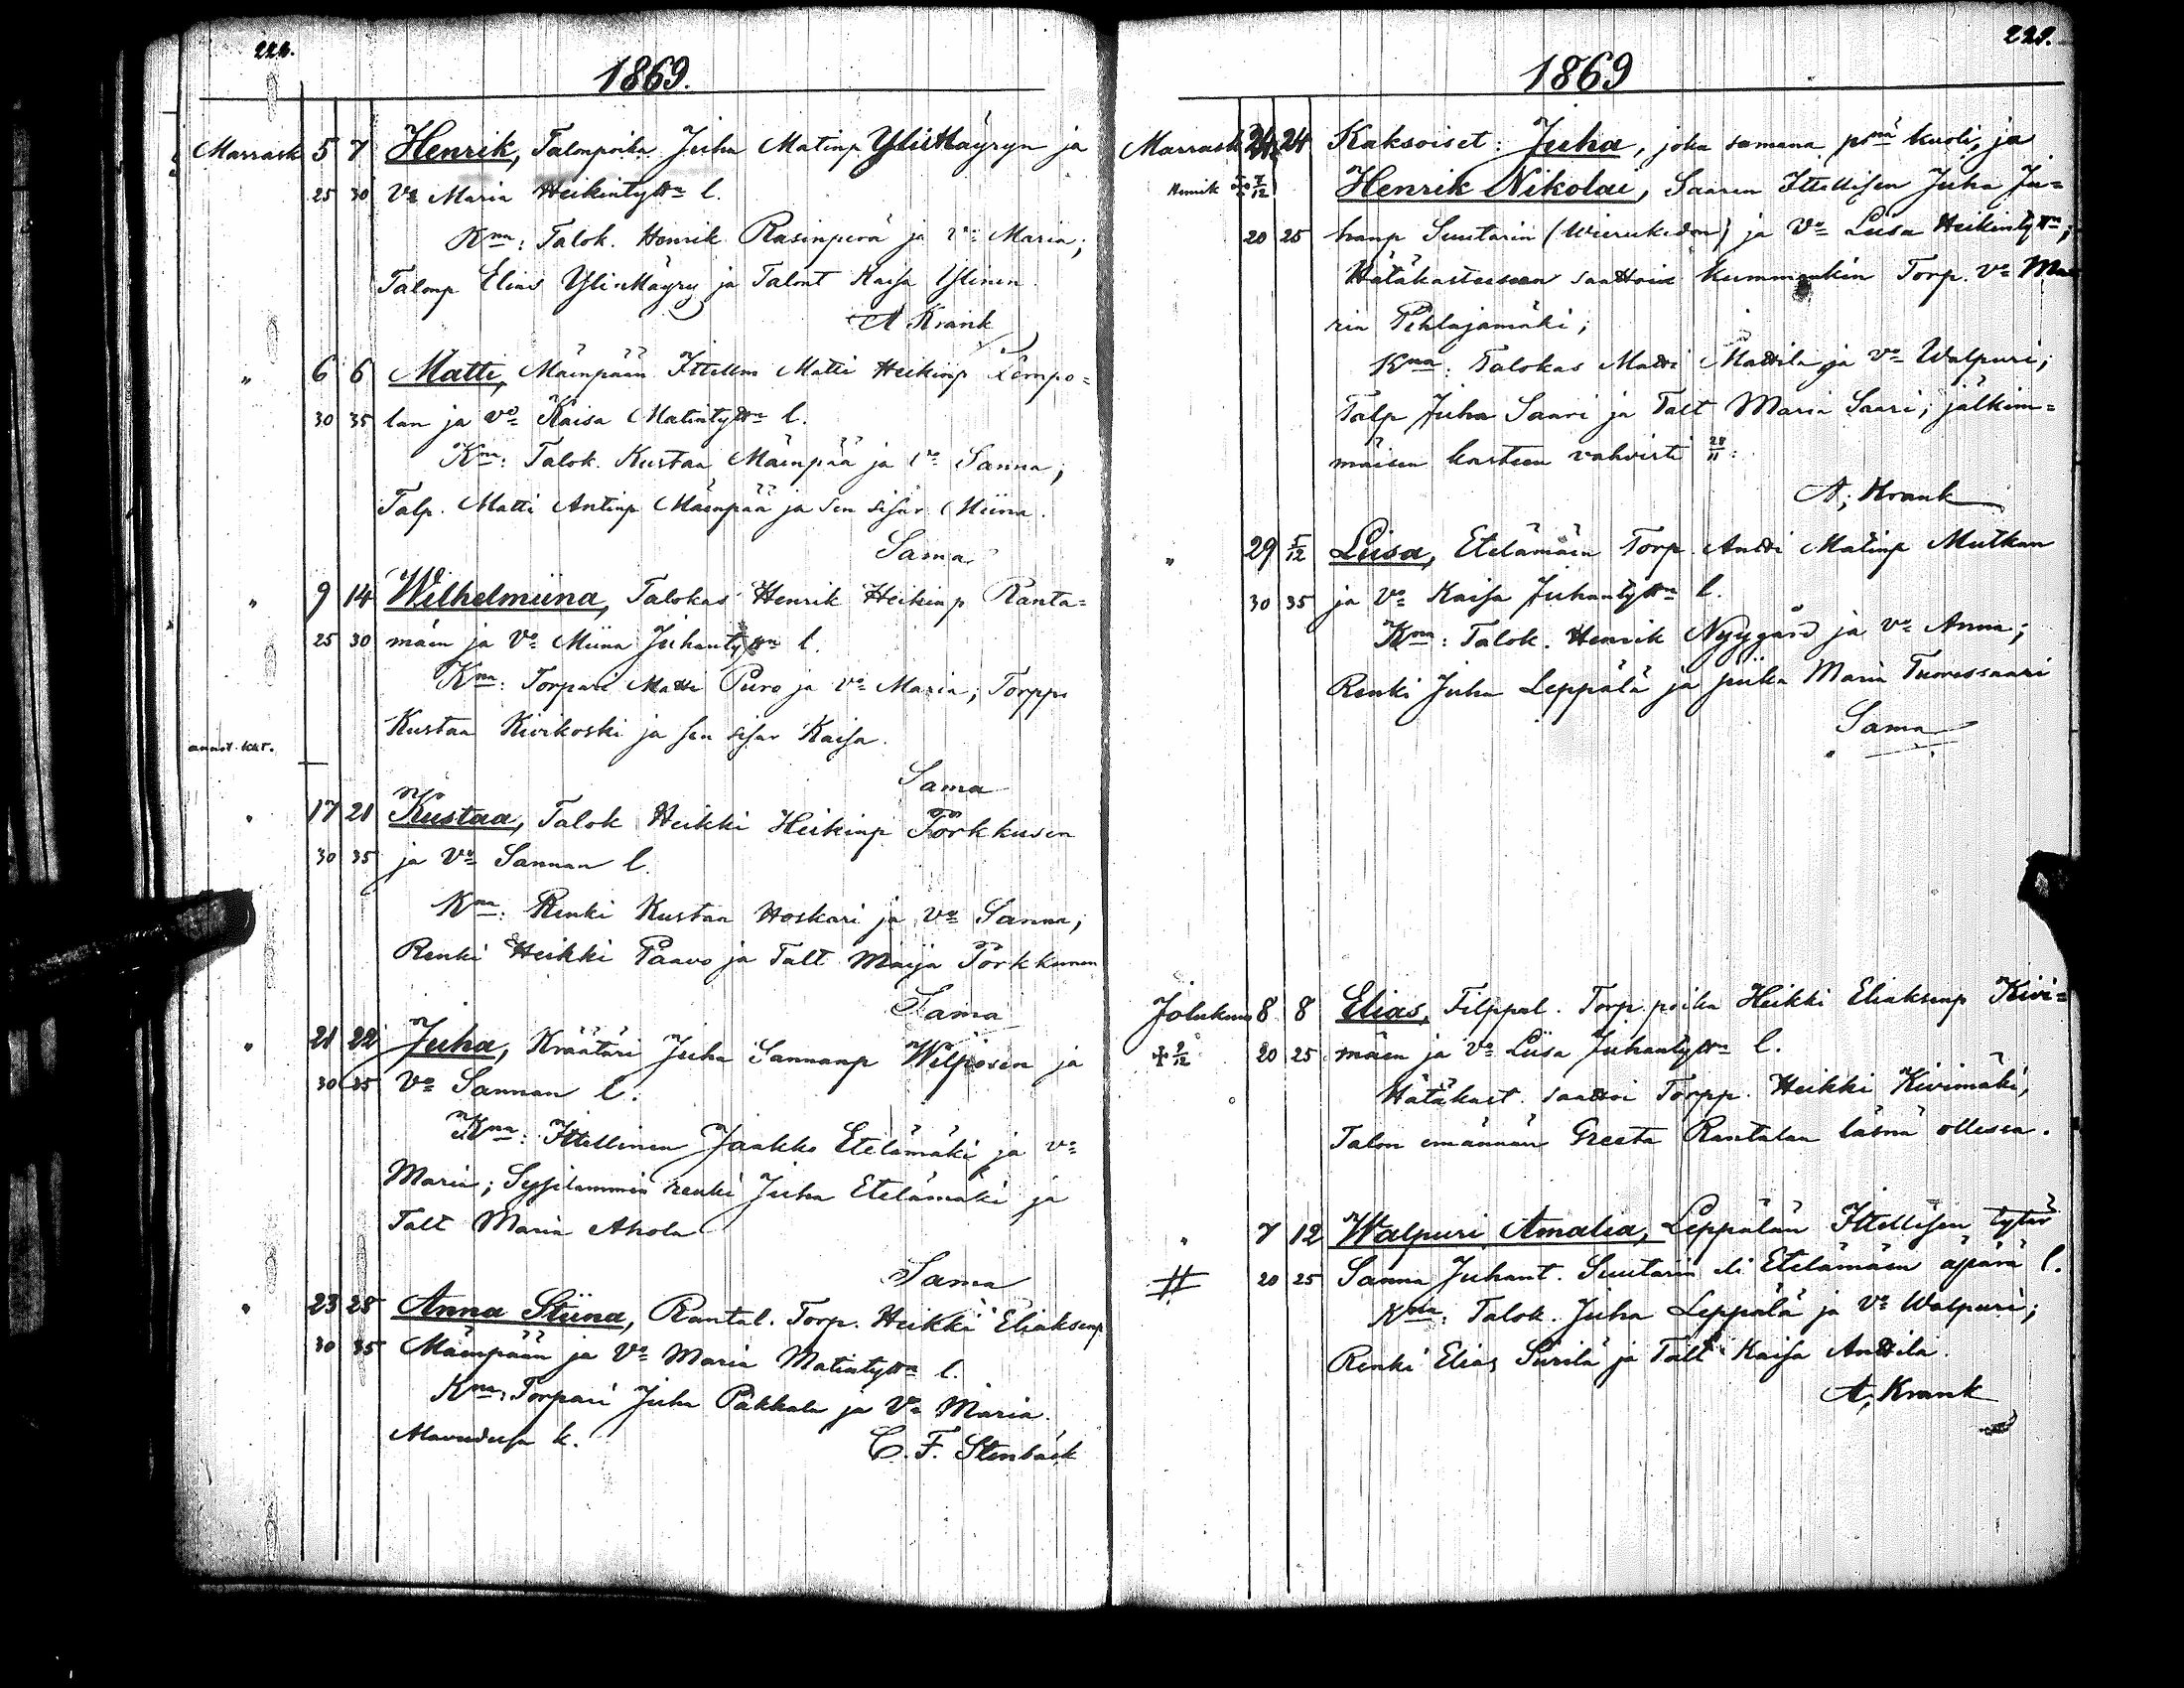 228.
1869.
Marrask 5 7 Henrik, Talonpoika Juha Matinp YliMäyryn ja
25 30 Vo Maria Heikintyttn l.
Kmn: Talok. Henrik Rasinperä ja Vo Maria;
Talonp Elias YliMäyry ja Talont Kaisa Ylinen
A Krank
" 6 6 Matti, Mäenpään Ittellm Matti Heikinp Lempo=
30 35 lan ja Vo Kaisa Matintyttn l.
Kmn: Talok. Kustaa Mäenpää ja Vo Sanna;
Talp. Matti Antinp Mäenpää ja sen sisar Miina.
Sama
" 9 14 Wilhelmiina, Talokas Henrik Heikinp Ranta=
25 30 mäen ja Vo Miina Juhantyttn l.
Kmn: Torpari Matti Puro ja Vo Maria; Torpp.
Kustaa Kivikoski ja sen sisar Kaisa.
annot. kat.
Sama
" 17 21 Kustaa, Talok Heikki Heikinp Törkkusen
30 35 ja Vo Sannan l.
Kmn: Renki Kustaa Hoskari ja Vo Sanna;
Renki Heikki Paavo ja Talt Maija Törkkunen
Sama
" 21 22 Juha, Kräätäri Juha Sannanp Wilposen ja
30 35 Vo Sannan l.
Kmn: Ittellinen Jaakko Etelämäki ja Vo
Maria; Sysilammin renki Juha Etelämäki ja
Talt Maria Ahola
Sama
" 23 25 Anna Stiina, Rantal. Torp. Heikki Eliaksenp
30 35 Mäenpään ja Vo Maria Matintyttn l.
Kmn: Torpari Juha Pakkala ja Vo Maria.
Alavudessa k.
C. F. Stenbäck
229.
1869
Marrask 24 24 Kaksoiset: Juha, joka samana pnä kuoli, ja
Henrik 7/12 Henrik Nikolai, Saaren Ittellisen Juha Ju=
20 25 hanp Suutarin (Wierukedon) ja Vo Liisa Heikintyttn;
Hätäkasteseen saattoi kummankin Torp. Vo Ma
ria Pihlajamäki;
Kmn: Talokas Matti Mattila ja Vo Walpuri;
Talp Juha Saari ja Talt Maria Saari; jälkim=
mäisen kasteen vahvisti 28/11:
A, Krank
" 29 5/12 Liisa, Etelämäen Torp. Antti Matinp Mutkan
30 35 ja Vo Kaisa Juhantyttn l.
Kmn: Talok. Henrik Nyygård ja Vo Anna;
Renki Juha Leppälä ja piika Maria Tuoressaari
Sama
Joulukuu 8 8 Elias, Filppul. Torp.poika Heikki Eliaksenp Kivi=
+ 9/12 20 25 mäen ja Vo Liisa Juhantyttn l.
Hätäkast. saattoi Torpp. Heikki Kivimäki,
Talon emännän Greeta Rantalan läsnä ollessa.
" 7 12 Walpuri Amalia, Leppälän Ittellisen tytär
# 20 25 Sanna Juhant. Suutarin eli Etelämäen äpärä l.
Kmn: Talok. Juha Leppälä ja Vo Walpuri;
Renki Elias Siirilä ja Talt Kaisa Anttila.
A, Krank